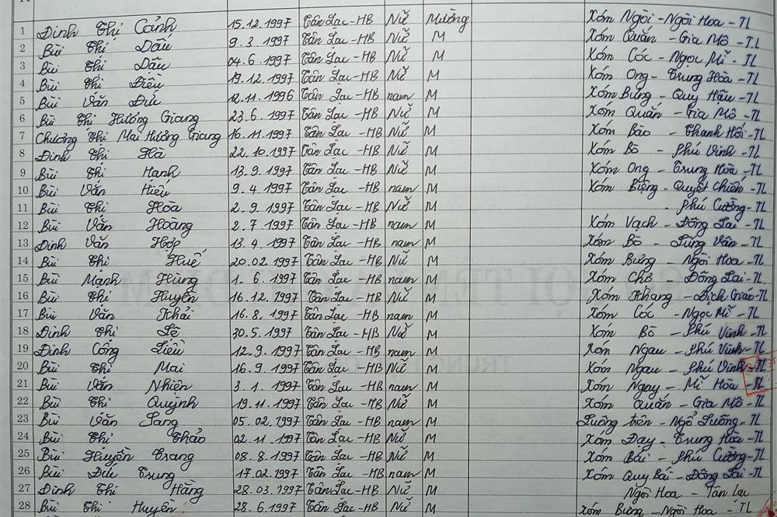 1 Đinh Thị Cảnh 15.12.1997 Tân Lạc-HB Nữ Mường Xóm Ngòi - Ngòi Hoa - TL
2 Bùi Thị Dấu 9.3.1997 Tân Lạc-HB Nữ M Xóm Quắn - Gia Mô - TL
3 Bùi Thị Dấu 04.6.1997 Tân Lạc-HB Nữ M Xóm Cóc - Ngọc Mĩ - TL
4 Bùi Thị Điều 19.12.1997 Tân Lạc-HB Nữ M Xóm Ong - Trung Hòa - TL
5 Bùi Văn Đức 12.11.1996 Tân Lạc-HB nam M Xóm Bưng - Quy Hậu - TL
6 Bùi Thị Hương Giang 23.6.1997 Tân Lạc-HB Nữ M Xóm Quắn - Gia Mô - TL
7 Chương Thị Mai Hương Giang 16.11.1997 Tân Lạc-HB Nữ M Xóm Bào - Thanh Hối - TL
8 Đinh Thị Hà 22.10.1997 Tân Lạc-HB Nữ M Xóm Bò - Phú Vinh - TL
9 Bùi Thị Hạnh 13.9.1997 Tân Lạc-HB Nữ M Xóm Ong - Trung Hòa - TL
10 Bùi Văn Hiếu 9.4.1997 Tân Lạc-HB nam M Xóm Biệng - Quyết Chiến - TL
11 Bùi Thị Hòa 2.9.1997 Tân Lạc-HB Nữ M - Phú Cường - TL
12 Bùi Văn Hoàng 2.7.1997 Tân Lạc-HB nam M Xóm Vạch - Đông Lai - TL
13 Đinh Văn Hợp 13.4.1997 Tân Lạc-HB nam M Xóm Bò - Lũng Vân - TL
14 Bùi Thị Huế 20.02.1997 Tân Lạc-HB Nữ M Xóm Bưng - Ngòi Hoa - TL
15 Bùi Mạnh Hùng 1.6.1997 Tân Lạc-HB nam M Xóm - Đông Lai - TL
16 Bùi Thị Huyền 16.12.1997 Tân Lạc-HB Nữ M Xóm Khang - Địch Giáo - TL
17 Bùi Văn Khải 16.8.1997 Tân Lạc-HB nam M Xóm Cóc - Ngọc Mĩ - TL
18 Đinh Thị Lệ 30.5.1997 Tân Lạc-HB Nữ M Xóm Bò - Phú Vinh - TL
19 Đinh Công Liều 12.9.1997 Tân Lạc-HB nam M Xóm Ngau - Phú Vinh - TL
20 Bùi Thị Mai 16.9.1997 Tân Lạc-HB Nữ M Xóm Ngau - Phú Vinh - TL
21 Bùi Văn Nhiên 3.1.1997 Tân Lạc-HB nam M Xóm Ngay - Mĩ Hòa - TL
22 Bùi Thị Quỳnh 19.11.1997 Tân Lạc-HB Nữ M Xóm Quắn - Gia Mô - TL
23 Bùi Văn Sang 05.02.1997 Tân Lạc-HB nam M Luông trên - Ngổ Luông - TL
24 Bùi Thị Thảo 02.11.1997 Tân Lạc-HB Nữ M Xóm Day - Trung Hòa - TL
25 Bùi Huyền Trang 08.8.1997 Tân Lạc-HB Nữ M Xóm Bái - Phú Cường - TL
26 Bùi Đức Trung 17.02.1997 Tân Lạc-HB nam M Xóm Quy Bái - Đông Lai - TL
27 Đinh Thị Hằng 28.03.1997 Tân Lạc-HB Nữ M Ngòi Hoa - Tân Lạc
28 Bùi Thị Huyền 28.6.1997 Tân Lạc-HB Nữ M Xóm Bưng - Ngòi Hoa - TL